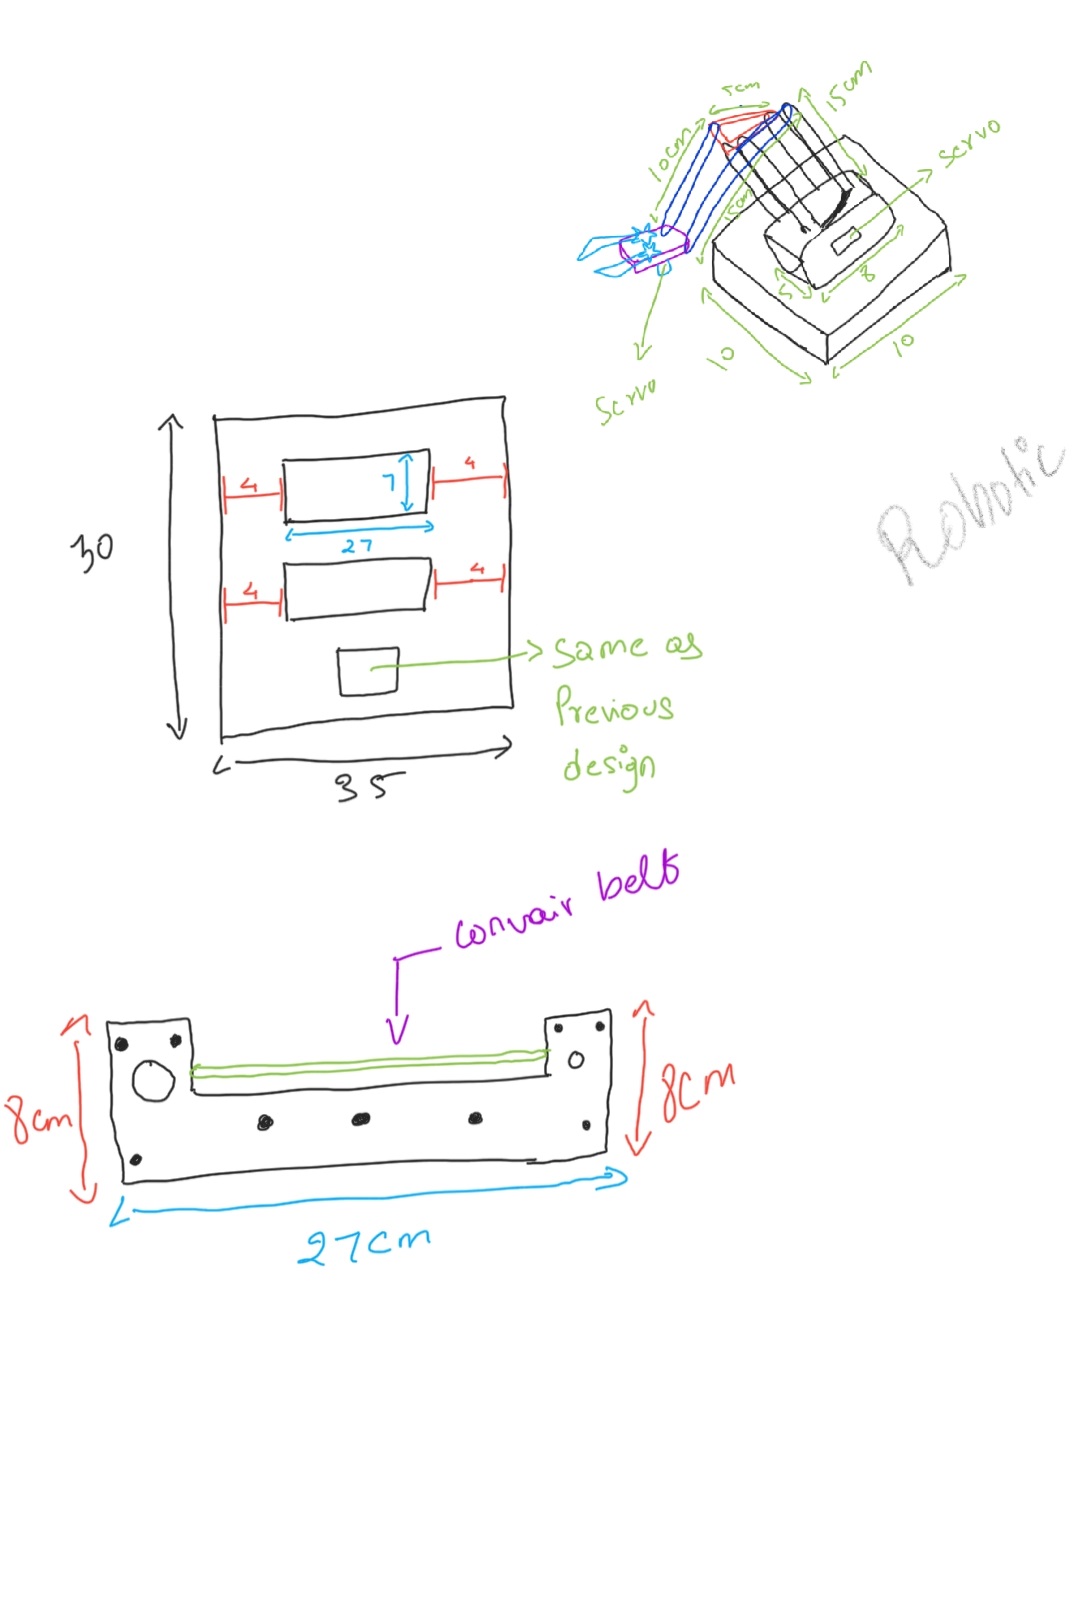 5cm
15cm
10cm
servo
15cm
5
8
10
10
Servo
Robotic
4
7
4
30
27
4
4
Same as
Previous
design
35
convair belt
8cm
8cm
27cm